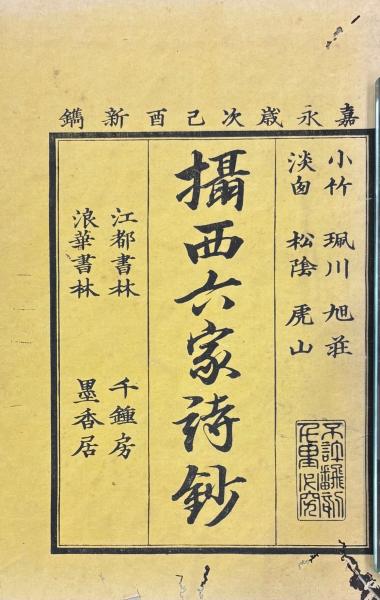 嘉永歳次己酉新鐫
小竹 珮川 旭荘
淡囱 松陰 虎山
攝西六家詩鈔
江都書林 千鍾房
浪華書林 墨香居
不許翻刻